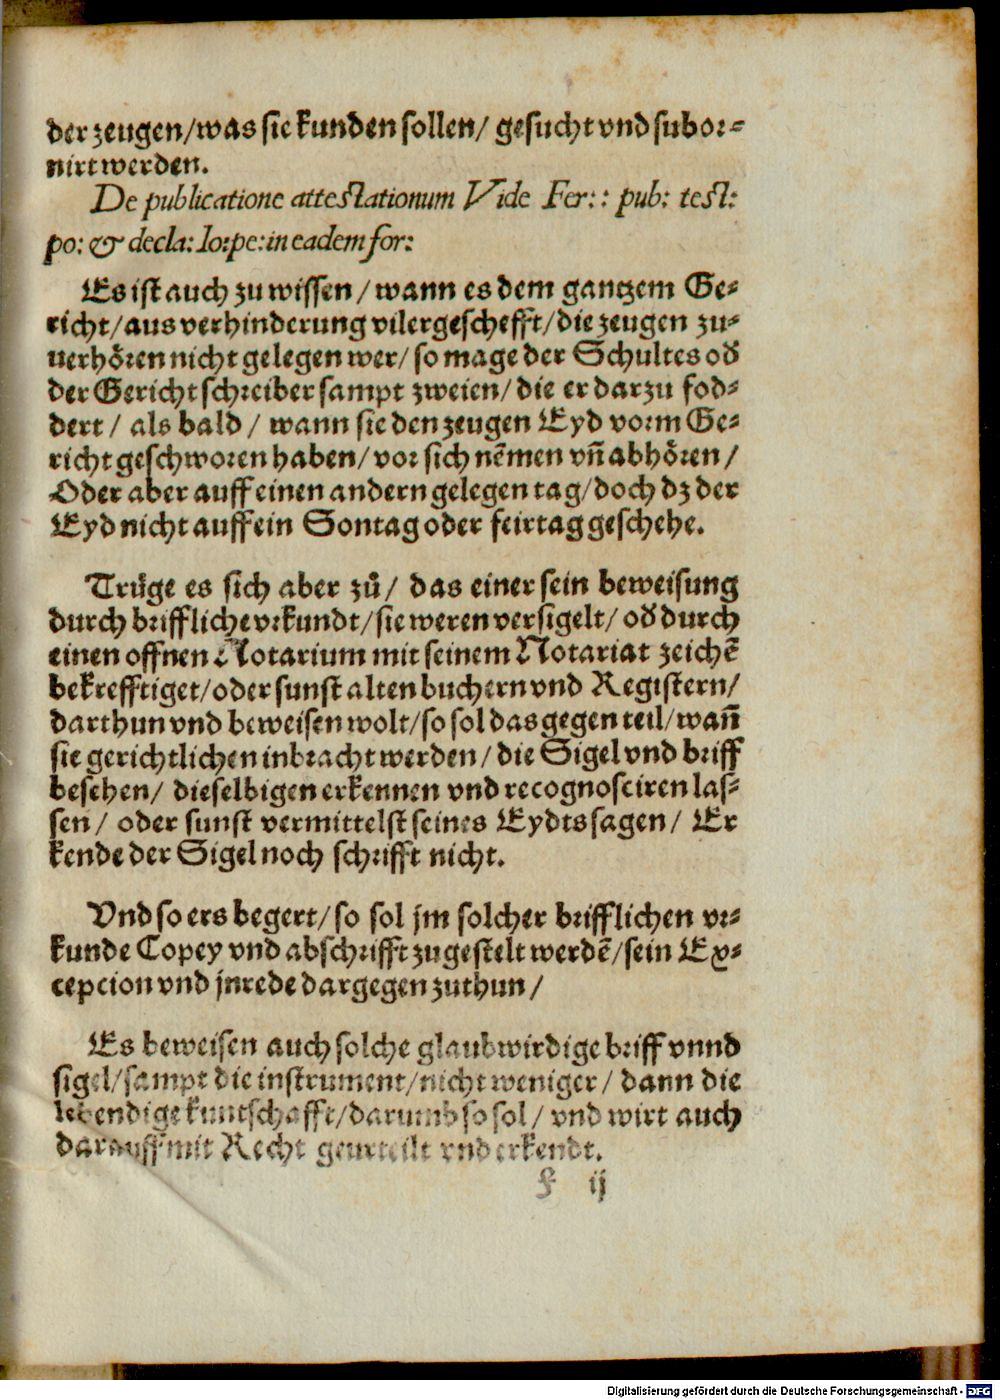 der zeugen/was sie kunden sollen/ gesucht vnd subor⸗
nirt werden.
De publicatione attestationum Vide Fer:: pub: test:
po: & decla: Io:pe: in eadem for:
Es ist auch zu wissen/ wann es dem gantzem Ge⸗
richt/aus verhinderung viler geschefft/die zeugen zu⸗
uerhoͤren nicht gelegen wer/ so mage der Schultes od̕
der Gericht schreiber sampt zweien/ die er darzu fod⸗
dert/ als bald/ wann sie den zeugen Eyd vorm Ge⸗
richt geschworen haben/ vor sich nẽmen vñ abhoͤren/
Oder aber auff einen andern gelegen tag/doch dz der
Eyd nicht auff ein Sontag oder feirtag geschehe.
Truͤge es sich aber zuͦ/ das einer sein beweisung
durch briffliche vrkundt/sie weren versigelt/ od̕ durch
einen offnen Notarium mit seinem Notariat zeichẽ
bekrefftiget/oder sunst alten buchern vnd Registern/
darthun vnd beweisen wolt/so sol das gegen teil/wañ
sie gerichtlichen inbracht werden/die Sigel vnd briff
besehen/ dieselbigen erkennen vnd recognosciren las⸗
sen/ oder sunst vermittelst seines Eydts sagen/ Er
kende der Sigel noch schrifft nicht.
Vnd so ers begert/so sol jm solcher brifflichen vr⸗
kunde Copey vnd abschrifft zugestelt werdẽ/sein Ex⸗
cepcion vnd jnrede dargegen zuthun/
Es beweisen auch solche glaubwirdige briff vnnd
sigel/sampt die instrument/nicht weniger/ dann die
lebendige kuntschafft/darumb so sol/ vnd wirt auch
darauff mit Recht geurteilt vnd erkendt.
F ij
Digitalisierung gefördert durch die Deutsche Forschungsgemeinschaft - DFG